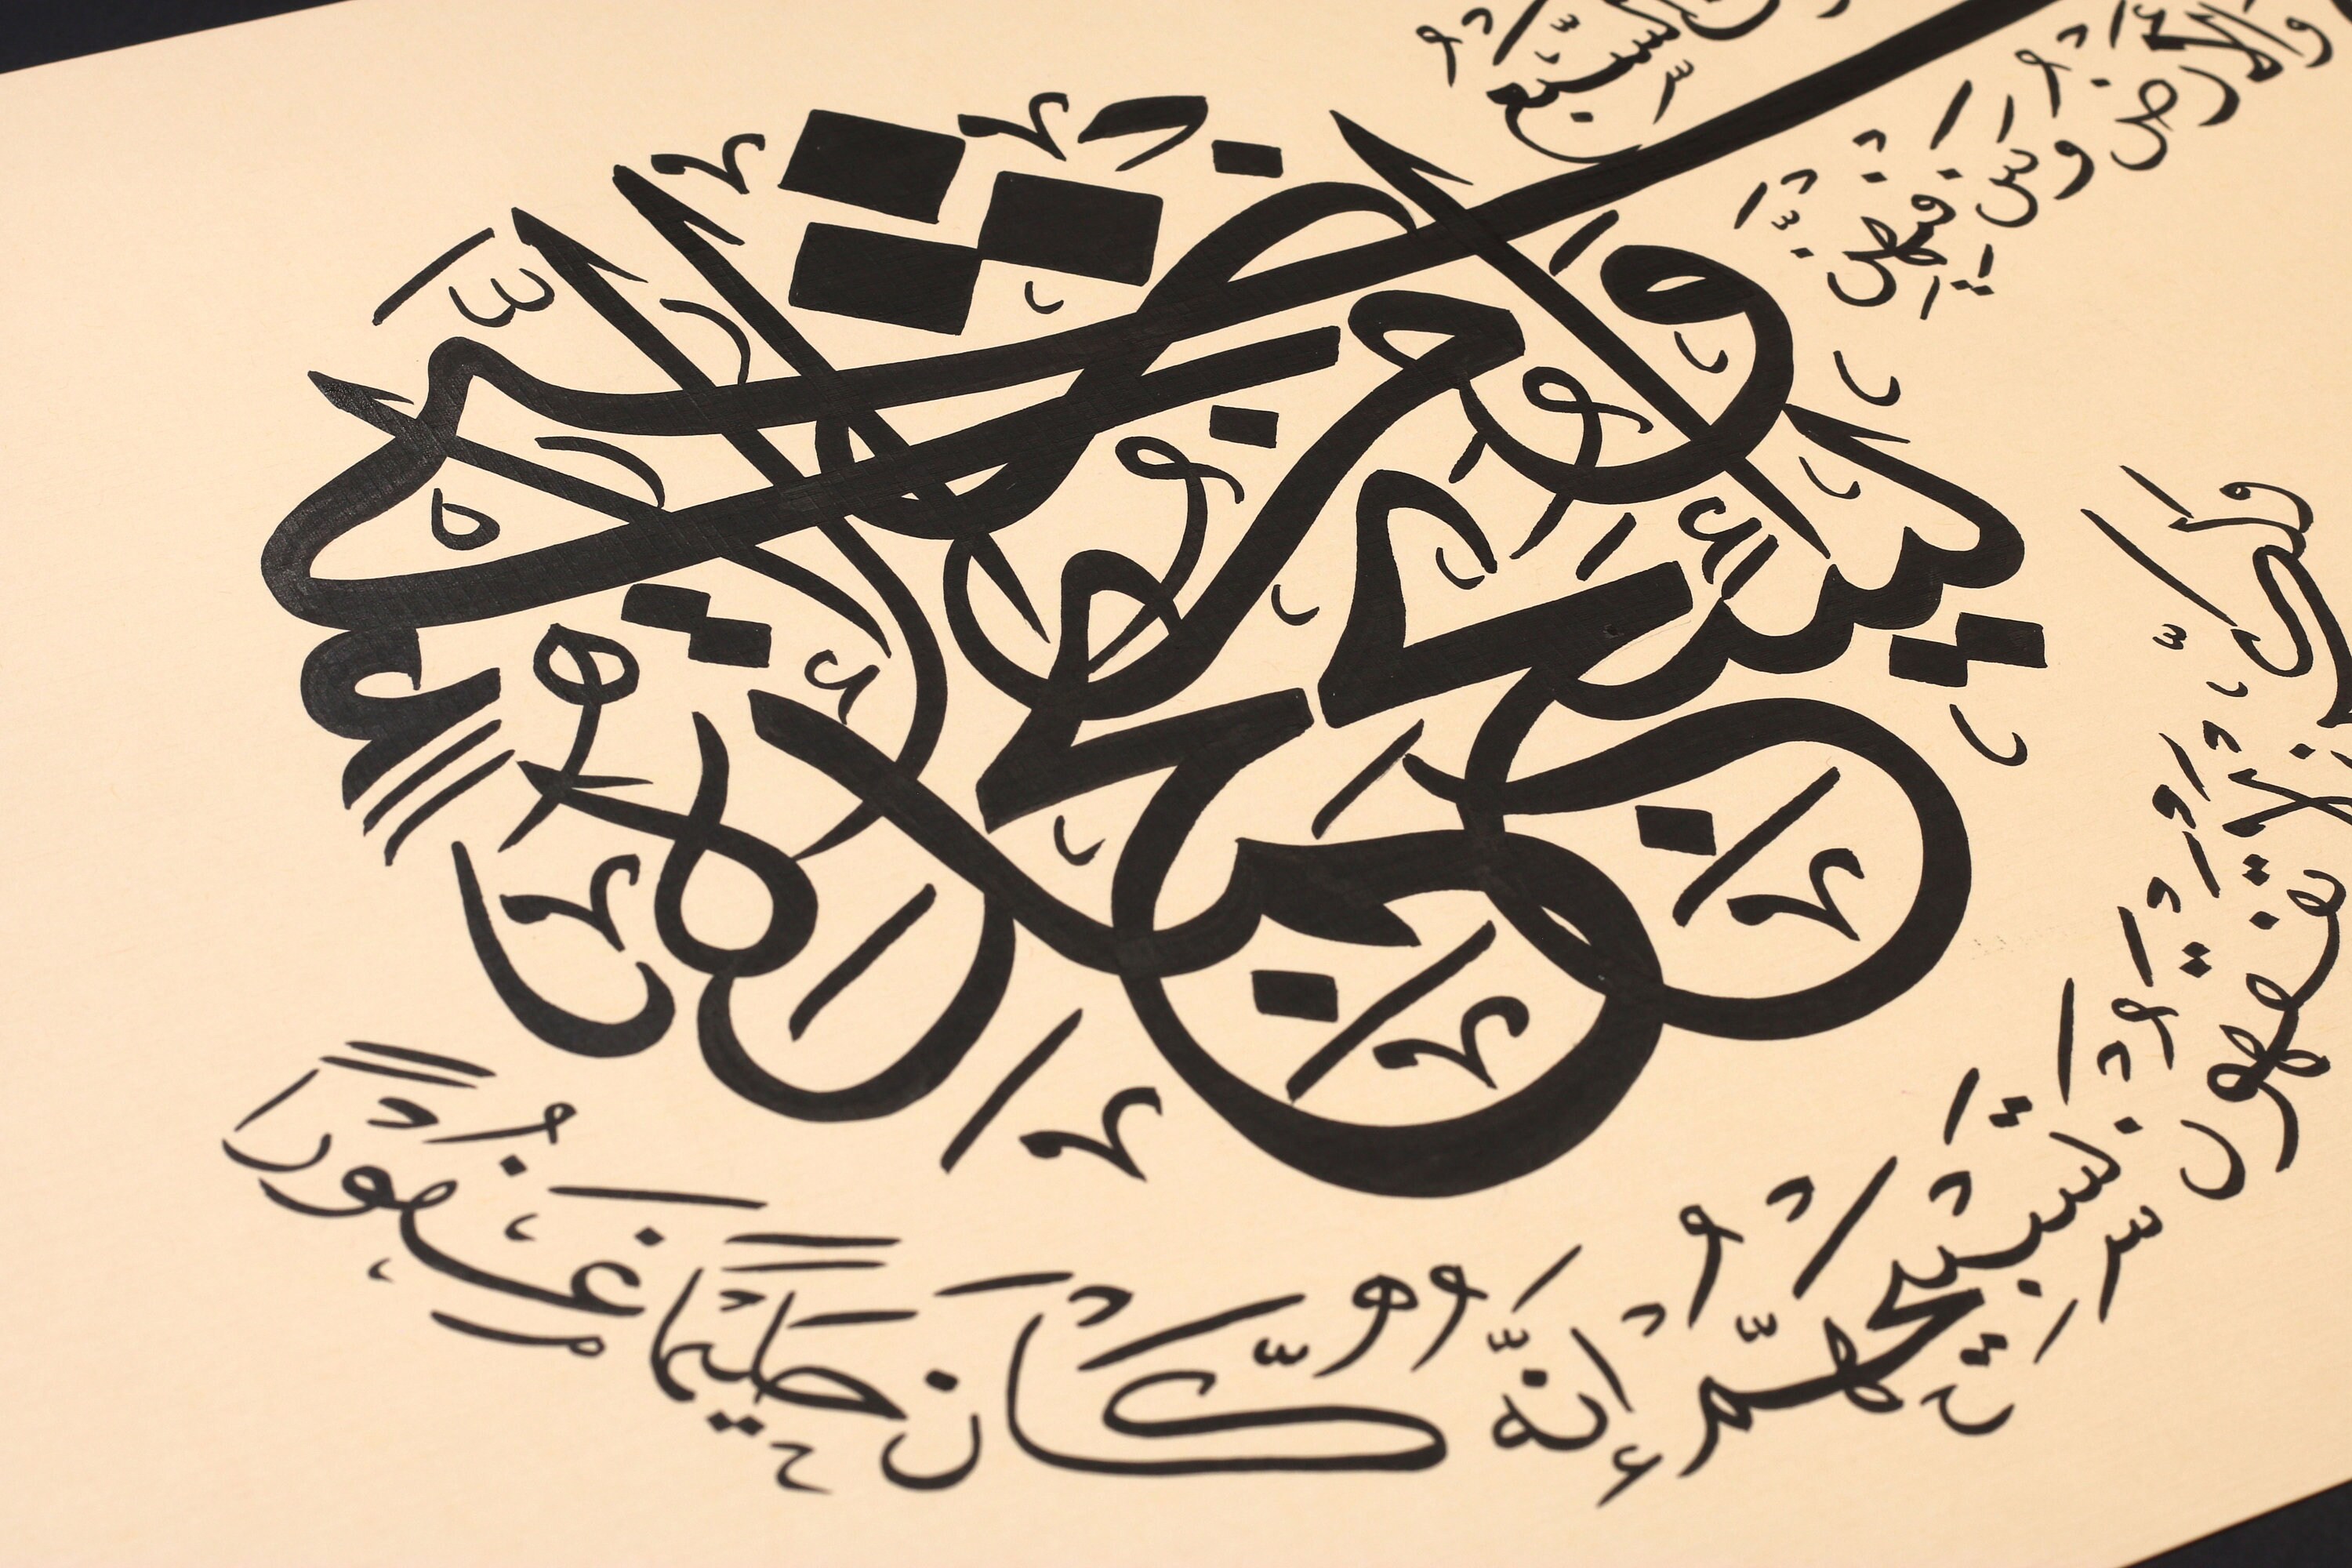 السَّبْعُ وَالْأَرْضُ وَمَنْ فِيهِنَّ
وَإِنْ مِنْ شَيْءٍ إِلَّا يُسَبِّحُ بِحَمْدِهِ
وَلَكِنْ لَا تَفْقَهُونَ تَسْبِيحَهُمْ إِنَّهُ كَانَ حَلِيمًا غَفُورًا